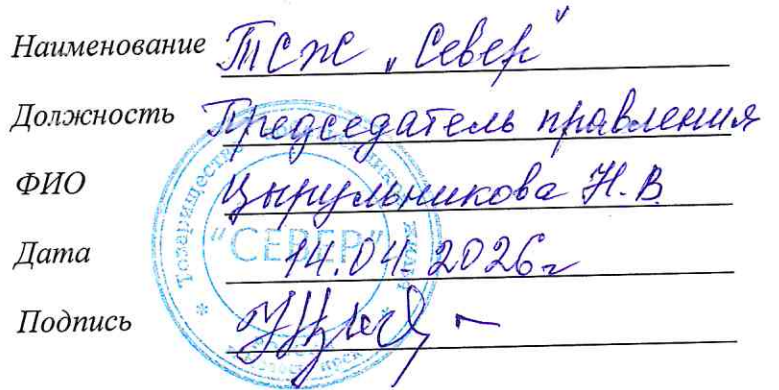 Наименование ТСЖ „Север"
Должность Председатель правления
ФИО Цырульникова Н.В
Дата 14.04.2026г
Подпись
Товарищество
"СЕВЕР"